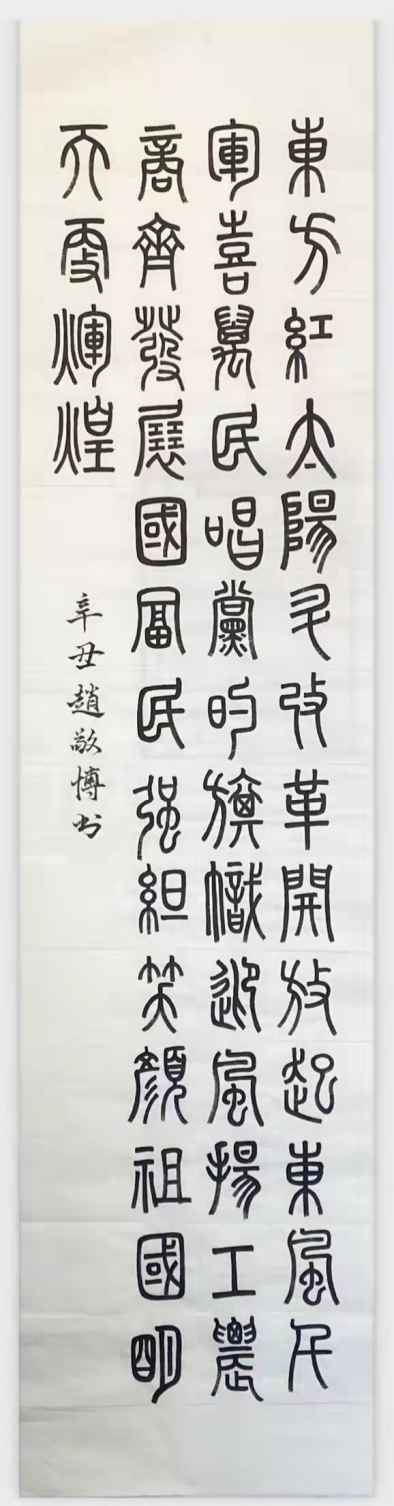 東方紅太陽升改革開放起東風
軍喜萬民唱黨的旗幟迎風揚工農
商齊發展國富民强綻笑顏祖國明
天更輝煌
辛丑趙敬博书